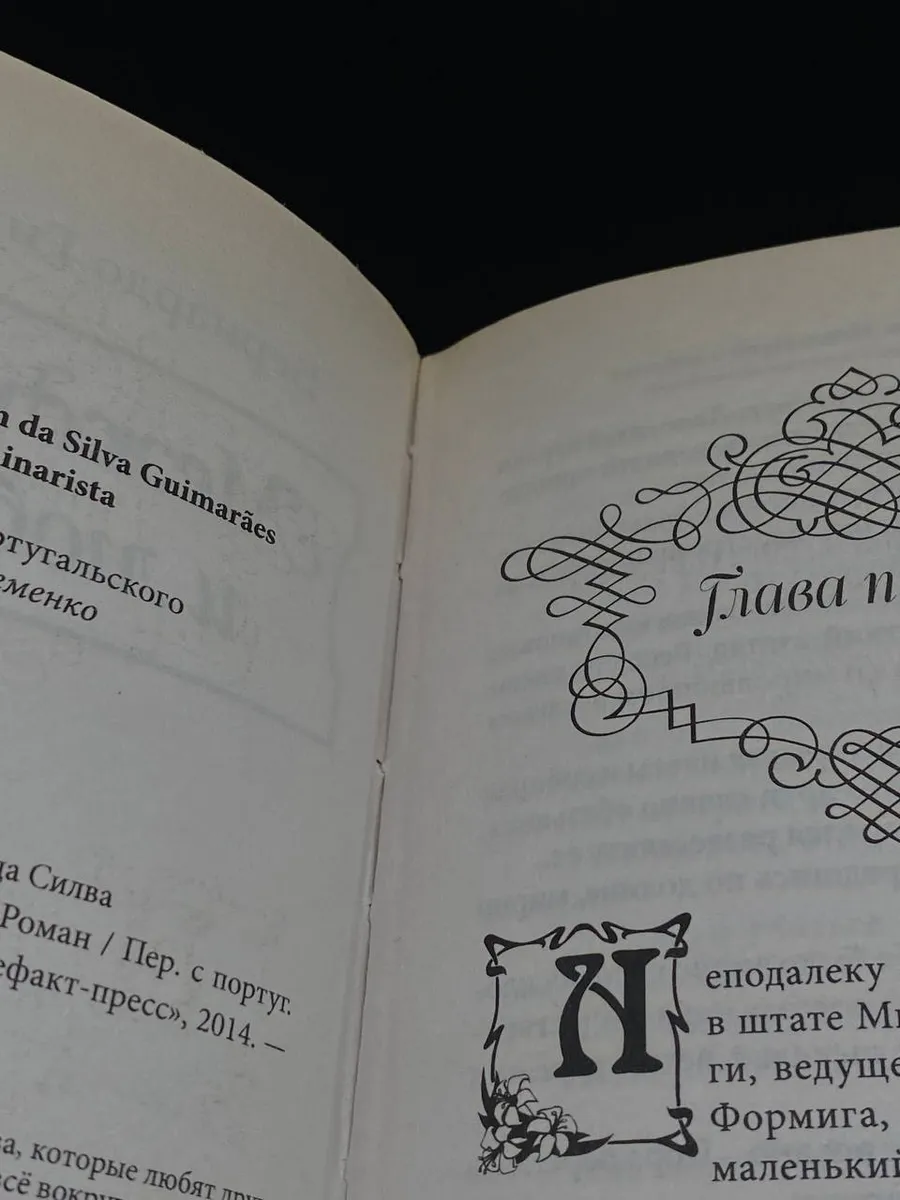 da Silva Guimarães
inarista
ортугальского
еменко
да Силва
Роман / Пер. с португ.
ефакт-пресс», 2014. —
ва, которые любят
всё вокруг
Глава п
Неподалеку
в штате Ми
ги, ведуще
Формига,
маленький